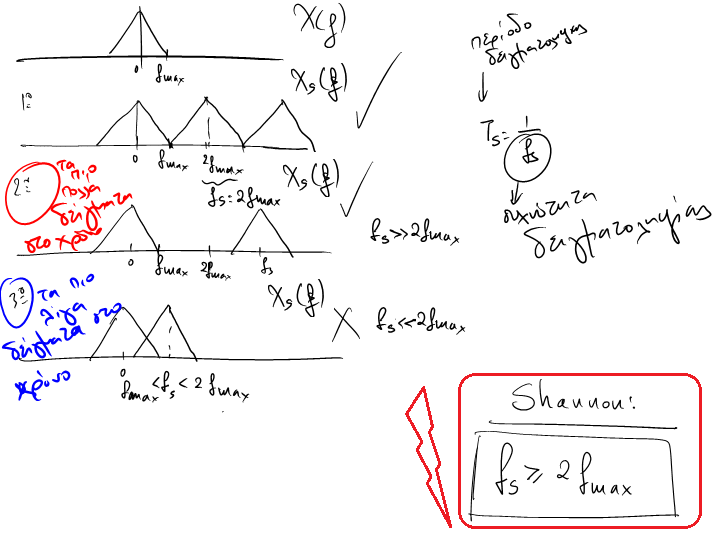 X(f)
0 fmax
Xs(f)
1º
0 fmax 2fmax
fs = 2fmax
Xs(f)
2º
τα
πιο
πολλα
δείγματα
στο χρόνο
0 fmax 2fmax fs
fs >> 2fmax
Xs(f)
3º
τα πιο
λίγα
δείγματα στο
χρόνο
fs << 2fmax
0
fmax < fs < 2 fmax
περίοδο
δειγματοληψίας
Ts = 1/fs
συχνότητα
δειγματοληψίας
Shannon:
fs ≥ 2 fmax